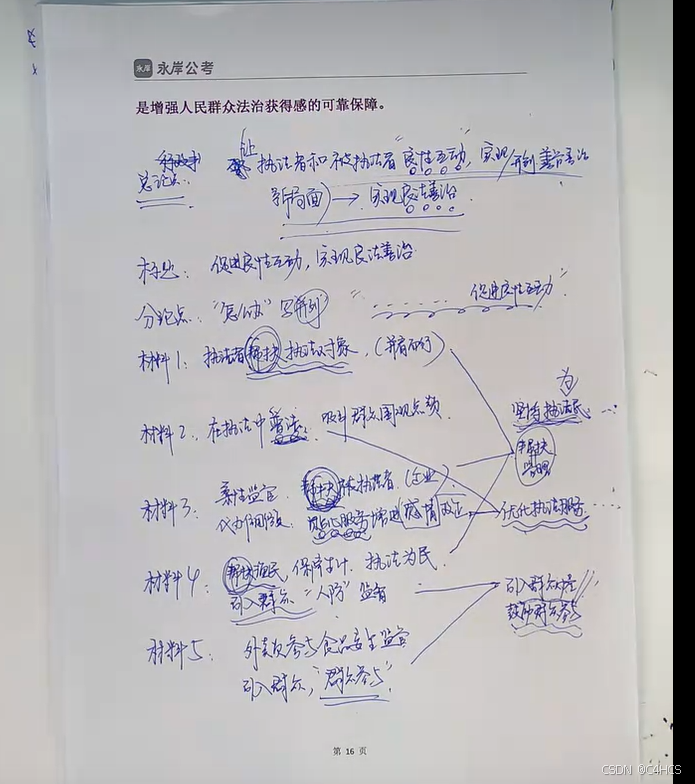 永岸 永岸公考
是增强人民群众法治获得感的可靠保障。
让
总论点: 执法者和被执法者"良性互动",实现/开创善治
新局面) → 实现良法善治
标题: 促进良性互动,实现良法善治
分论点:"怎么办"写并列 " 促进良性互动"
材料1: 执法者帮扶执法对象,(并肩而行)
为
材料2、在执法中普法; 吸引群众围观点赞. 坚持执法为民 ...
帮扶
材料3: 柔性监管. 帮扶被执法者.(企业)
服务增进感情 优化执法服务
材料4: 帮扶渔民,保障生计.执法为民
引入群众 "人防" 监督 引入群众
群众参与
材料5: 外卖员参与食品安全监管
引入群众,"群众参与"
第 16 页
CSDN @C4HCS